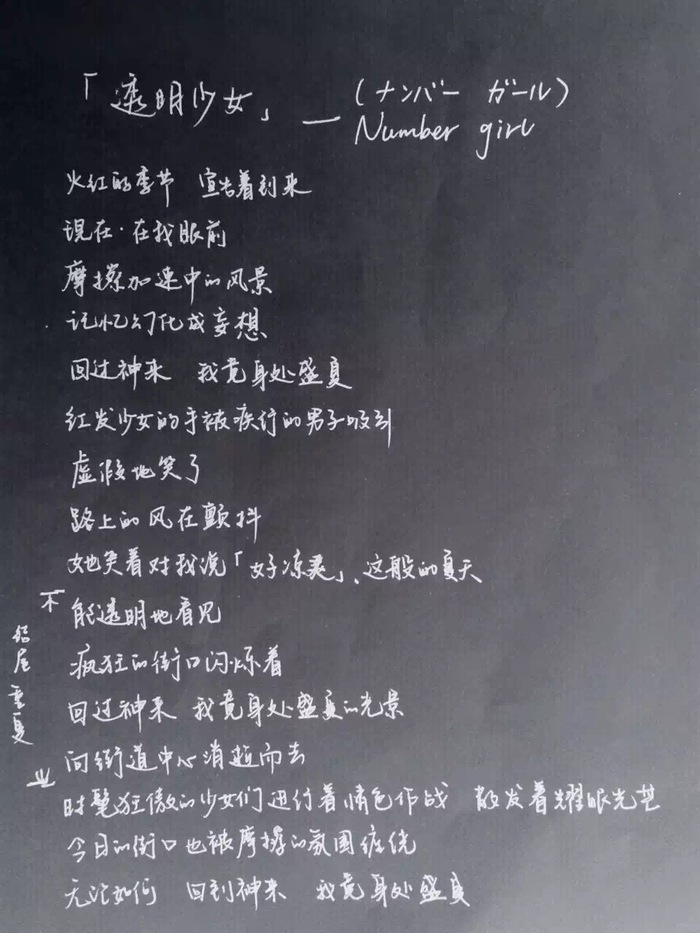 「透明少女」— (ナンバー ガール)
Number girl
火红的季节 宣告着到来
现在·在我眼前
摩擦加速中的风景
记忆幻化成妄想
回过神来 我竟身处盛夏
红发少女的手被疾行的男子吸引
虚假地笑了
路上的风在颤抖
她笑着对我说「好凉爽」、这般的夏天
能透明地看见
疯狂的街口闪烁着
回过神来 我竟身处盛夏的光景
向街道中心消逝而去
时髦狂傲的少女们进行着情色作战 散发着耀眼光芒
今日的街口也被摩擦的氛围缠绕
无论如何 回到神来 我竟身处盛夏
结尾重复